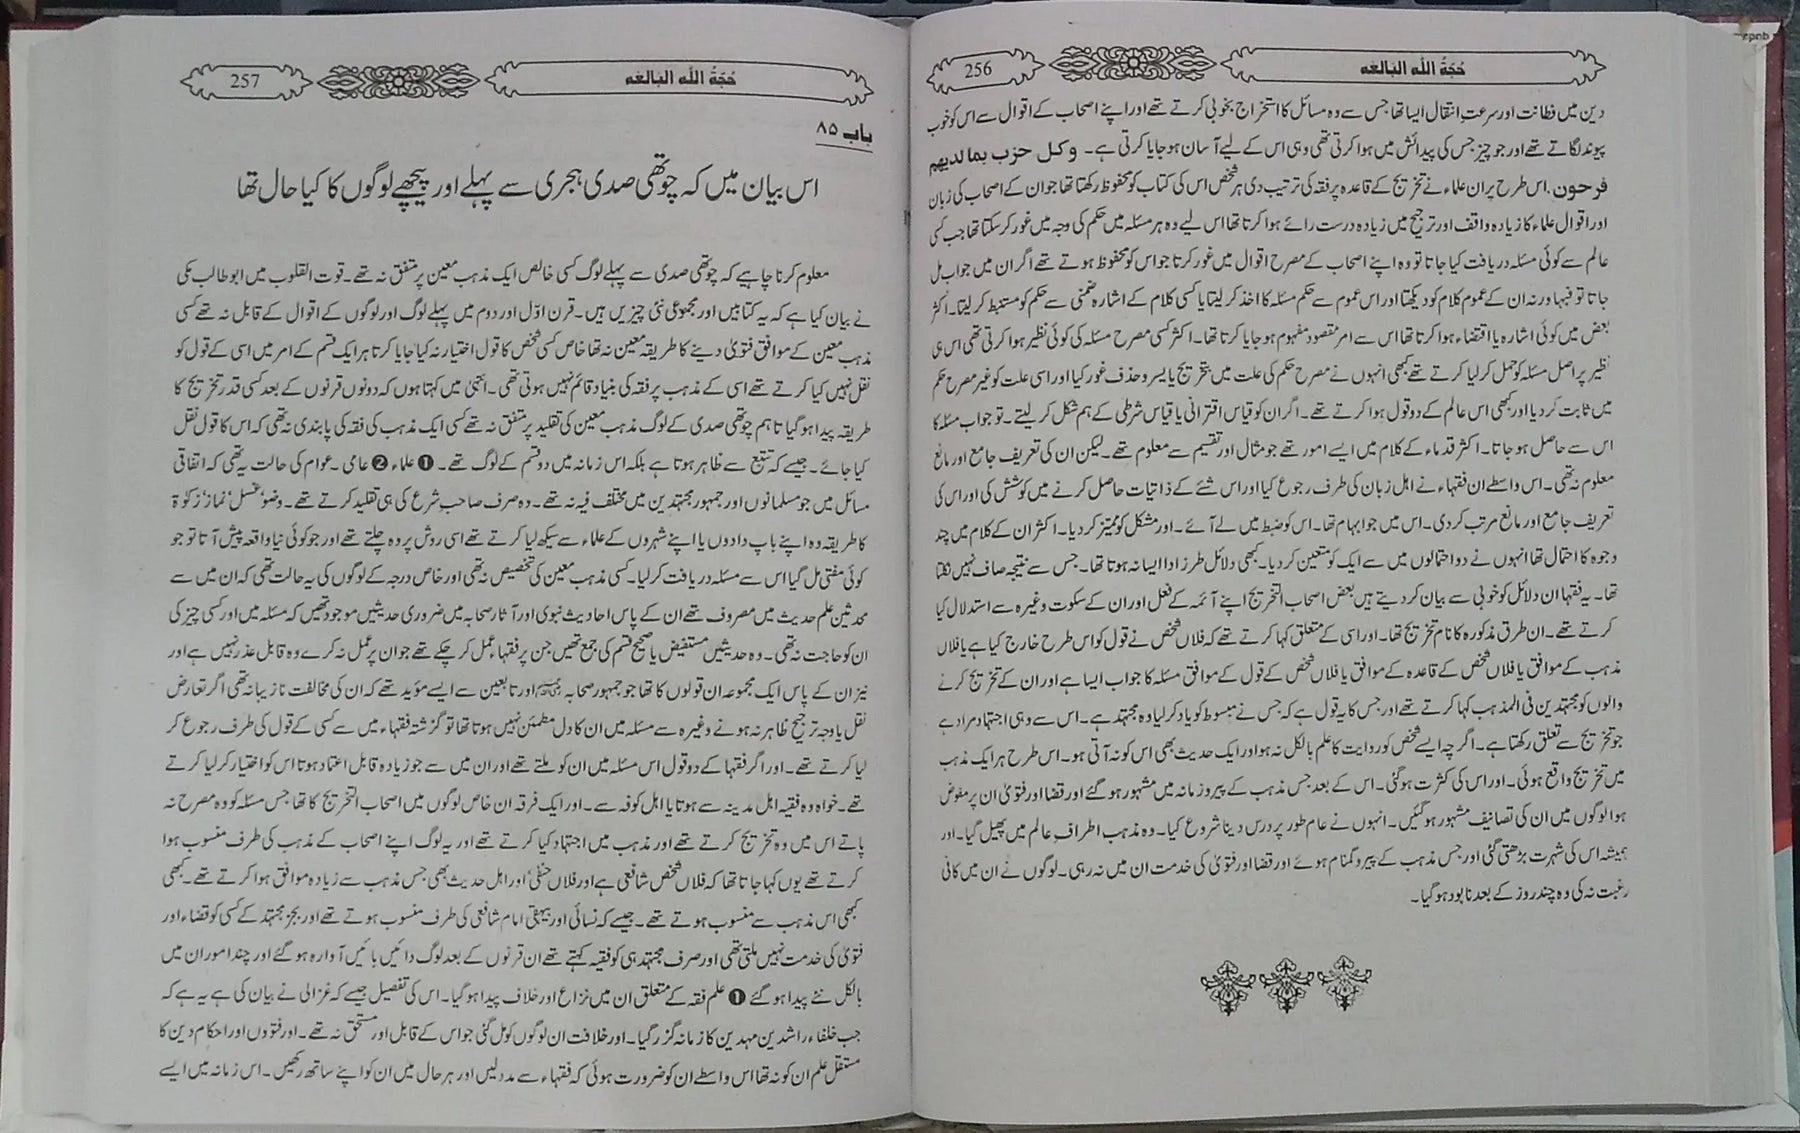 حُجَّةُ اللہ البالغہ
256
دین میں فطانت اور سرعتِ انتقال ایسا تھا جس سے وہ مسائل کا استخراج بخوبی کرتے تھے اور اپنے اصحاب کے اقوال سے اس کو خوب
پیوند لگاتے تھے اور جو چیز جس کی پیدائش میں ہوا کرتی تھی وہی اس کے لیے آسان ہو جایا کرتی ہے۔ وکل حزب بما لدیھم
فرحون. اس طرح پر ان علماء نے تخریج کے قاعدہ پر فقہ کی ترتیب دی ہر شخص اس کی کتاب کو محفوظ رکھتا تھا جو ان کے اصحاب کی زبان
اور اقوال علماء کا زیادہ واقف اور ترجیح میں زیادہ درست رائے ہوا کرتا تھا اس لیے وہ ہر مسئلہ میں حکم کی وجہ میں غور کر سکتا تھا جب کسی
عالم سے کوئی مسئلہ دریافت کیا جاتا تو وہ اپنے اصحاب کے مصرح اقوال میں غور کرتا جو اس کو محفوظ ہوتے تھے اگر ان میں جواب مل
جاتا تو فبہا ورنہ ان کے عموم کلام کو دیکھتا اور اس عموم سے حکم مسئلہ کا اخذ کر لیتا یا کسی کلام کے اشارہ ضمنی سے حکم کو مستنبط کر لیتا۔ اکثر
بعض میں کوئی اشارہ یا اقتضاء ہوا کرتا تھا اس سے امر مقصود مفہوم ہو جایا کرتا تھا۔ اکثر کسی مصرح مسئلہ کی کوئی نظیر ہوا کرتی تھی اس ہی
نظیر پر اصل مسئلہ کو حمل کر لیا کرتے تھے کبھی انہوں نے مصرح حکم کی علت میں بتخریج یا یسر وحذف غور کیا اور اسی علت کو غیر مصرح حکم
میں ثابت کر دیا اور کبھی اس عالم کے دو قول ہوا کرتے تھے۔ اگر ان کو قیاس اقترانی یا قیاس شرطی کے ہم شکل کر لیتے۔ تو جواب مسئلہ کا
اس سے حاصل ہو جاتا۔ اکثر قدماء کے کلام میں ایسے امور تھے جو مثال اور تقسیم سے معلوم تھے۔ لیکن ان کی تعریف جامع اور مانع
معلوم نہ تھی۔ اس واسطے ان فقہاء نے اہل زبان کی طرف رجوع کیا اور اس شئے کے ذاتیات حاصل کرنے میں کوشش کی اور اس کی
تعریف جامع اور مانع مرتب کر دی۔ اس میں جو ابہام تھا۔ اس کو ضبط میں لے آئے۔ اور مشکل کو ممیز کر دیا۔ اکثر ان کے کلام میں چند
وجوہ کا احتمال تھا انہوں نے دو احتمالوں میں سے ایک کو متعین کر دیا۔ کبھی دلائل طرز ادا ایسا نہ ہوتا تھا۔ جس سے نتیجہ صاف نہیں نکلتا
تھا۔ یہ فقہا ان دلائل کو خوبی سے بیان کر دیتے ہیں بعض اصحاب التخریج اپنے آئمہ کے فعل اور ان کے سکوت وغیرہ سے استدلال کیا
کرتے تھے۔ ان طرق مذکورہ کا نام تخریج تھا۔ اور اسی کے متعلق کہا کرتے تھے کہ فلاں شخص نے قول کو اس طرح خارج کیا ہے یا فلاں
مذہب کے موافق یا فلاں شخص کے قاعدہ کے موافق یا فلاں شخص کے قول کے موافق مسئلہ کا جواب ایسا ہے اور ان کے تخریج کرنے
والوں کو مجتہدین فی المذہب کہا کرتے تھے اور جس کا یہ قول ہے کہ جس نے مبسوط کو یاد کر لیا وہ مجتہد ہے۔ اس سے وہی اجتہاد مراد ہے
جو تخریج سے تعلق رکھتا ہے۔ اگرچہ ایسے شخص کو روایت کا علم بالکل نہ ہو اور ایک حدیث بھی اس کو نہ آتی ہو۔ اس طرح ہر ایک مذہب
میں تخریج واقع ہوئی۔ اور اس کی کثرت ہو گئی۔ اس کے بعد جس مذہب کے پیرو زمانہ میں مشہور ہو گئے اور قضا اور فتویٰ ان پر مفوض
ہوا لوگوں میں ان کی تصانیف مشہور ہو گئیں۔ انہوں نے عام طور پر درس دینا شروع کیا۔ وہ مذہب اطرافِ عالم میں پھیل گیا۔ اور
ہمیشہ اس کی شہرت بڑھتی گئی اور جس مذہب کے پیرو گمنام ہوئے اور قضا اور فتویٰ کی خدمت ان میں نہ رہی۔ لوگوں نے ان میں کافی
رغبت نہ کی وہ چند روز کے بعد نابود ہو گیا۔
حُجَّةُ اللہ البالغہ
257
باب ۸۵
اس بیان میں کہ چوتھی صدی ہجری سے پہلے اور پیچھے لوگوں کا کیا حال تھا
معلوم کرنا چاہیے کہ چوتھی صدی سے پہلے لوگ کسی خالص ایک مذہب معین پر متفق نہ تھے۔ قوت القلوب میں ابو طالب مکی
نے بیان کیا ہے کہ یہ کتابیں اور مجموعی نئی چیزیں ہیں۔ قرن اوّل اور دوم میں پہلے لوگ اور لوگوں کے اقوال کے قابل نہ تھے کسی
مذہب معین کے موافق فتویٰ دینے کا طریقہ معین نہ تھا خاص کسی شخص کا قول اختیار نہ کیا جایا کرتا ہر ایک قسم کے امر میں اسی کے قول کو
نقل نہیں کیا کرتے تھے اسی کے مذہب پر فقہ کی بنیاد قائم نہیں ہوتی تھی۔ انتہیٰ میں کہتا ہوں کہ دونوں قرنوں کے بعد کسی قدر تخریج کا
طریقہ پیدا ہو گیا تاہم چوتھی صدی کے لوگ مذہب معین کی تقلید پر متفق نہ تھے کسی ایک مذہب کی فقہ کی پابندی نہ تھی کہ اس کا قول نقل
کیا جائے۔ جیسے کہ تتبع سے ظاہر ہوتا ہے بلکہ اس زمانہ میں دو قسم کے لوگ تھے۔ ❶ علماء ❷ عامی۔ عوام کی حالت یہ تھی کہ اتفاقی
مسائل میں جو مسلمانوں اور جمہور مجتہدین میں مختلف فیہ نہ تھے۔ وہ صرف صاحب شرع کی ہی تقلید کرتے تھے۔ وضو، غسل، نماز، زکوٰۃ
کا طریقہ وہ اپنے باپ دادوں یا اپنے شہروں کے علماء سے سیکھ لیا کرتے تھے اسی روش پر وہ چلتے تھے اور جو کوئی نیا واقعہ پیش آتا تو جو
کوئی مفتی مل گیا اس سے مسئلہ دریافت کر لیا۔ کسی مذہب معین کی تخصیص نہ تھی اور خاص درجہ کے لوگوں کی یہ حالت تھی کہ ان میں سے
محدثین علم حدیث میں مصروف تھے ان کے پاس احادیث نبوی اور آثار صحابہ میں ضروری حدیثیں موجود تھیں کہ مسئلہ میں اور کسی چیز کی
ان کو حاجت نہ تھی۔ وہ حدیثیں مستفیض یا صحیح قسم کی جمع تھیں جن پر فقہاء عمل کر چکے تھے جو ان پر عمل نہ کرے وہ قابل عذر نہیں ہے اور
نیز ان کے پاس ایک مجموعہ ان قولوں کا تھا جو جمہور صحابہ ؓ اور تابعین سے ایسے مؤید تھے کہ ان کی مخالفت نازیبا نہ تھی اگر تعارض
نقل یا وجہ ترجیح ظاہر نہ ہونے وغیرہ سے مسئلہ میں ان کا دل مطمئن نہیں ہوتا تھا تو گزشتہ فقہاء میں سے کسی کے قول کی طرف رجوع کر
لیا کرتے تھے۔ اور اگر فقہا کے دو قول اس مسئلہ میں ان کو ملتے تھے اور ان میں سے جو زیادہ قابل اعتماد ہوتا اس کو اختیار کر لیا کرتے
تھے۔ خواہ وہ فقیہ اہل مدینہ سے ہوتا یا اہل کوفہ سے۔ اور ایک فرقہ ان خاص لوگوں میں اصحاب التخریج کا تھا جس مسئلہ کو وہ مصرح نہ
پاتے اس میں وہ تخریج کرتے تھے اور مذہب میں اجتہاد کیا کرتے تھے اور یہ لوگ اپنے اصحاب کے مذہب کی طرف منسوب ہوا
کرتے تھے یوں کہا جاتا تھا کہ فلاں شخص شافعی ہے اور فلاں حنفی، اور اہل حدیث بھی جس مذہب سے زیادہ موافق ہوا کرتے تھے۔ کبھی
کبھی اس مذہب سے منسوب ہوتے تھے۔ جیسے کہ نسائی اور بیہقی امام شافعی کی طرف منسوب ہوتے تھے اور بجز مجتہد کے کسی کو قضاء اور
فتویٰ کی خدمت نہیں ملتی تھی اور صرف مجتہد ہی کو فقیہ کہتے تھے ان قرنوں کے بعد لوگ دائیں بائیں آوارہ ہو گئے اور چند امور ان میں
بالکل نئے پیدا ہو گئے ❶ علم فقہ کے متعلق ان میں نزاع اور خلاف پیدا ہو گیا۔ اس کی تفصیل جیسے کہ غزالی نے بیان کی ہے یہ ہے کہ
جب خلفاء راشدین مہدین کا زمانہ گزر گیا۔ اور خلافت ان لوگوں کو مل گئی جو اس کے قابل اور مستحق نہ تھے۔ اور فتووں اور احکام دین کا
مستقل علم ان کو نہ تھا اس واسطے ان کو ضرورت ہوئی کہ فقہاء سے مدد لیں اور ہر حال میں ان کو اپنے ساتھ رکھیں۔ اس زمانہ میں ایسے